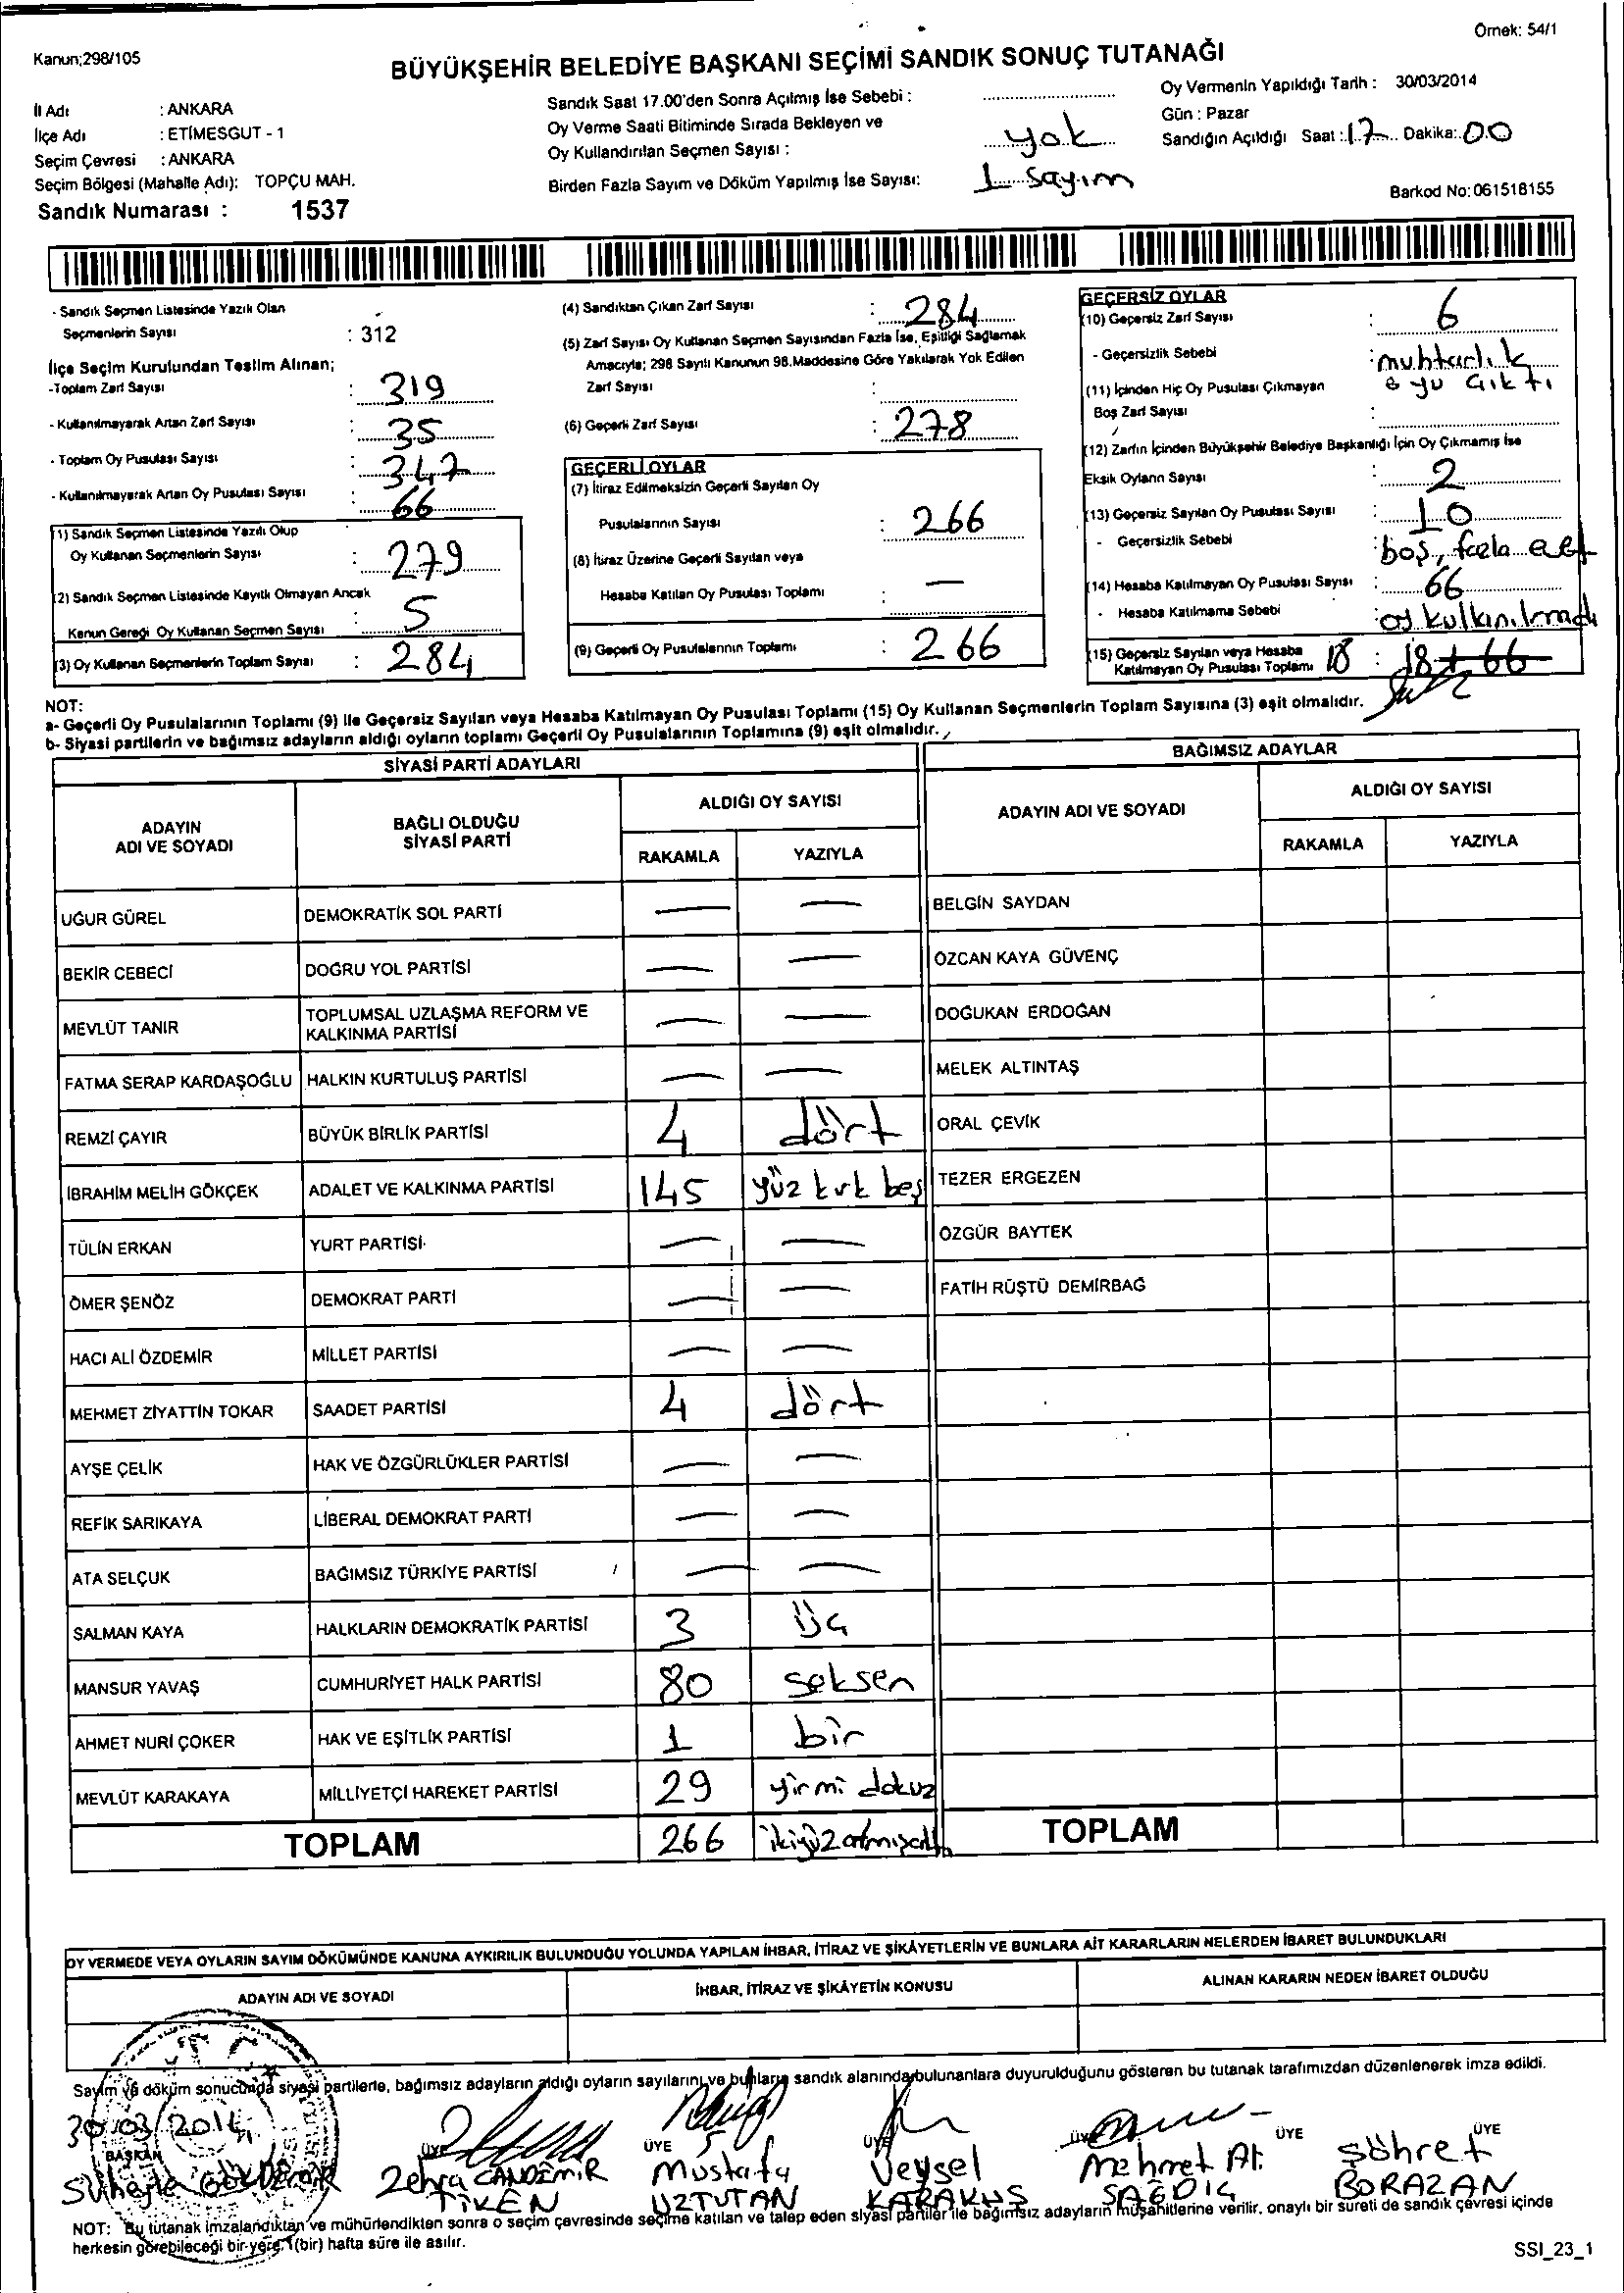 Örnek: 54/1
Kanun;298/105
BÜYÜKŞEHİR BELEDİYE BAŞKANI SEÇİMİ SANDIK SONUÇ TUTANAĞI
İl Adı : ANKARA
İlçe Adı : ETİMESGUT - 1
Seçim Çevresi : ANKARA
Seçim Bölgesi (Mahalle Adı): TOPÇU MAH.
Sandık Numarası : 1537
Sandık Saat 17.00'den Sonra Açılmış İse Sebebi :
Oy Verme Saati Bitiminde Sırada Bekleyen ve
Oy Kullandırılan Seçmen Sayısı : yok
Birden Fazla Sayım ve Döküm Yapılmış İse Sayısı: 1 sayım
Oy Vermenin Yapıldığı Tarih : 30/03/2014
Gün : Pazar
Sandığın Açıldığı Saat : 17 Dakika: 00
Barkod No: 061518155
- Sandık Seçmen Listesinde Yazılı Olan
Seçmenlerin Sayısı : 312
İlçe Seçim Kurulundan Teslim Alınan;
-Toplam Zarf Sayısı : 319
- Kullanılmayarak Artan Zarf Sayısı : 35
- Toplam Oy Pusulası Sayısı : 347
- Kullanılmayarak Artan Oy Pusulası Sayısı : 66
(1) Sandık Seçmen Listesinde Yazılı Olup
Oy Kullanan Seçmenlerin Sayısı : 279
(2) Sandık Seçmen Listesinde Kayıtlı Olmayan Ancak
Kanun Gereği Oy Kullanan Seçmen Sayısı : 5
(3) Oy Kullanan Seçmenlerin Toplam Sayısı : 284
(4) Sandıktan Çıkan Zarf Sayısı : 284
(5) Zarf Sayısı Oy Kullanan Seçmen Sayısından Fazla İse, Eşitliği Sağlamak
Amacıyla; 298 Sayılı Kanunun 98.Maddesine Göre Yakılarak Yok Edilen
Zarf Sayısı :
(6) Geçerli Zarf Sayısı : 278
GEÇERLİ OYLAR
(7) İtiraz Edilmeksizin Geçerli Sayılan Oy
Pusulalarının Sayısı : 266
(8) İtiraz Üzerine Geçerli Sayılan veya
Hesaba Katılan Oy Pusulası Toplamı : —
(9) Geçerli Oy Pusulalarının Toplamı : 266
GEÇERSİZ OYLAR
(10) Geçersiz Zarf Sayısı : 6
- Geçersizlik Sebebi : muhtarlık
oyu çıktı
(11) İçinden Hiç Oy Pusulası Çıkmayan
Boş Zarf Sayısı :
(12) Zarfın İçinden Büyükşehir Belediye Başkanlığı İçin Oy Çıkmamış İse
Eksik Oyların Sayısı : 2
(13) Geçersiz Sayılan Oy Pusulası Sayısı : 10
- Geçersizlik Sebebi : boş, fazla
(14) Hesaba Katılmayan Oy Pusulası Sayısı : 66
- Hesaba Katılmama Sebebi : oy kullanılmadı
(15) Geçersiz Sayılan veya Hesaba
Katılmayan Oy Pusulası Toplamı 18 : 18 + 66
NOT:
a- Geçerli Oy Pusulalarının Toplamı (9) ile Geçersiz Sayılan veya Hesaba Katılmayan Oy Pusulası Toplamı (15) Oy Kullanan Seçmenlerin Toplam Sayısına (3) eşit olmalıdır.
b- Siyasi partilerin ve bağımsız adayların aldığı oyların toplamı Geçerli Oy Pusulalarının Toplamına (9) eşit olmalıdır.
SİYASİ PARTİ ADAYLARI
ADAYIN ADI VE SOYADI
BAĞLI OLDUĞU SİYASİ PARTİ
ALDIĞI OY SAYISI
RAKAMLA YAZIYLA
UĞUR GÜREL DEMOKRATİK SOL PARTİ — —
BEKİR CEBECİ DOĞRU YOL PARTİSİ — —
MEVLÜT TANIR TOPLUMSAL UZLAŞMA REFORM VE KALKINMA PARTİSİ — —
FATMA SERAP KARDAŞOĞLU HALKIN KURTULUŞ PARTİSİ — —
REMZİ ÇAYIR BÜYÜK BİRLİK PARTİSİ 4 dört
İBRAHİM MELİH GÖKÇEK ADALET VE KALKINMA PARTİSİ 145 yüz kırk beş
TÜLİN ERKAN YURT PARTİSİ — —
ÖMER ŞENÖZ DEMOKRAT PARTİ — —
HACI ALİ ÖZDEMİR MİLLET PARTİSİ — —
MEHMET ZİYATTİN TOKAR SAADET PARTİSİ 4 dört
AYŞE ÇELİK HAK VE ÖZGÜRLÜKLER PARTİSİ — —
REFİK SARIKAYA LİBERAL DEMOKRAT PARTİ — —
ATA SELÇUK BAĞIMSIZ TÜRKİYE PARTİSİ — —
SALMAN KAYA HALKLARIN DEMOKRATİK PARTİSİ 3 üç
MANSUR YAVAŞ CUMHURİYET HALK PARTİSİ 80 seksen
AHMET NURİ ÇOKER HAK VE EŞİTLİK PARTİSİ 1 bir
MEVLÜT KARAKAYA MİLLİYETÇİ HAREKET PARTİSİ 29 yirmi dokuz
TOPLAM 266 ikiyüzatmışaltı
BAĞIMSIZ ADAYLAR
ADAYIN ADI VE SOYADI
ALDIĞI OY SAYISI
RAKAMLA YAZIYLA
BELGİN SAYDAN
ÖZCAN KAYA GÜVENÇ
DOĞUKAN ERDOĞAN
MELEK ALTINTAŞ
ORAL ÇEVİK
TEZER ERGEZEN
ÖZGÜR BAYTEK
FATİH RÜŞTÜ DEMİRBAĞ
TOPLAM
OY VERMEDE VEYA OYLARIN SAYIM DÖKÜMÜNDE KANUNA AYKIRILIK BULUNDUĞU YOLUNDA YAPILAN İHBAR, İTİRAZ VE ŞİKÂYETLERİN VE BUNLARA AİT KARARLARIN NELERDEN İBARET BULUNDUKLARI
ADAYIN ADI VE SOYADI
İHBAR, İTİRAZ VE ŞİKÂYETİN KONUSU
ALINAN KARARIN NEDEN İBARET OLDUĞU
Sayım ve döküm sonucunda siyasi partilerle, bağımsız adayların aldığı oyların sayılarını ve bunların sandık alanında bulunanlara duyurulduğunu gösteren bu tutanak tarafımızdan düzenlenerek imza edildi.
30/03/2014
BAŞKAN ÜYE ÜYE ÜYE ÜYE ÜYE ÜYE
Süheyla GÖKDEMİR
Zehra CANDEMİR TİKEN
Mustafa UZTUTAN
Veysel KARAKUŞ
Mehmet At. SAĞDIÇ
Şöhret BORAZAN
NOT: Bu tutanak imzalandıktan ve mühürlendikten sonra o seçim çevresinde seçime katılan ve talep eden siyasi partiler ile bağımsız adayların müşahitlerine verilir, onaylı bir sureti de sandık çevresi içinde
herkesin görebileceği bir yere 1(bir) hafta süre ile asılır.
SSI_23_1